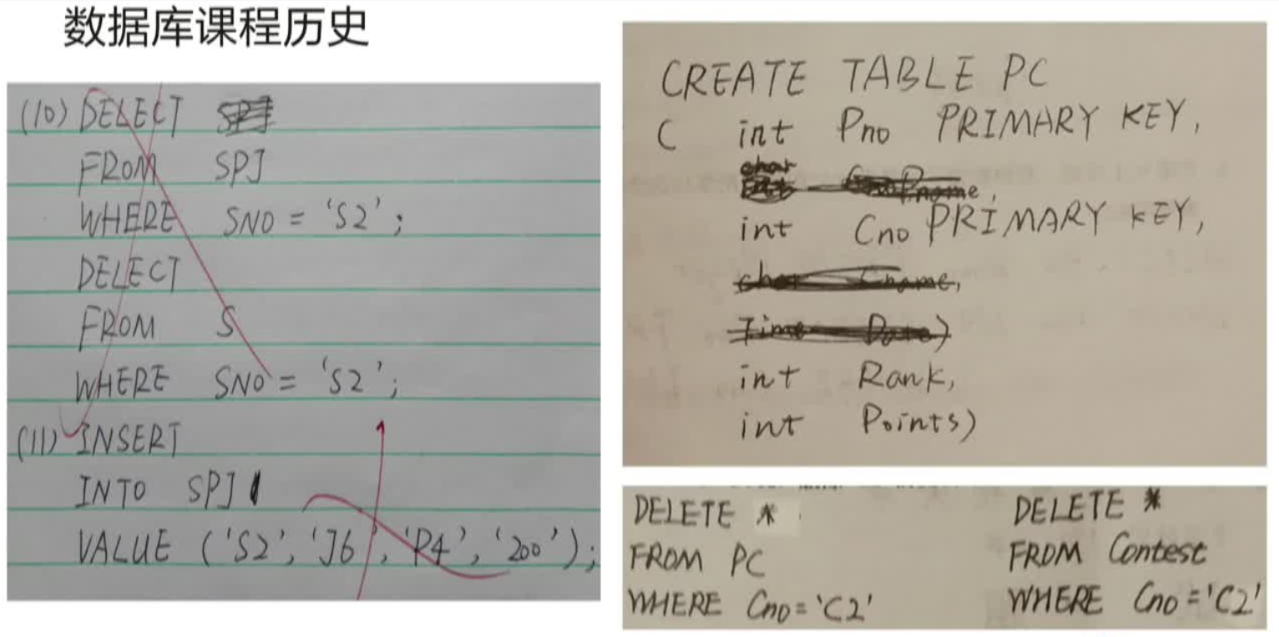 数据库课程历史
(10) DELECT
FROM SPJ
WHERE SNO = 'S2';
DELECT
FROM S
WHERE SNO = 'S2';
(11) INSERT
INTO SPJ
VALUE ('S2', 'J6', 'P4', '200');
CREATE TABLE PC
( int Pno PRIMARY KEY,
char Pname,
int Cno PRIMARY KEY,
char Cname,
Time Date)
int Rank,
int Points)
DELETE *
FROM PC
WHERE Cno = 'C2'
DELETE *
FROM Contest
WHERE Cno = 'C2'